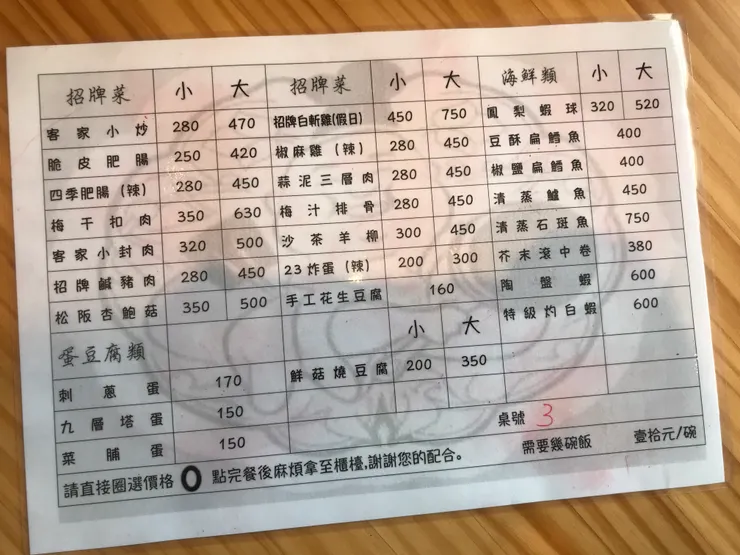 招牌菜 小 大 招牌菜 小 大 海鮮類 小 大
客家小炒 280 470 招牌白斬雞(假日) 450 750 鳳梨蝦球 320 520
脆皮肥腸 250 420 椒麻雞(辣) 280 450 豆酥扁鱈魚 400
四季肥腸(辣) 280 450 蒜泥三層肉 280 450 椒鹽扁鱈魚 400
梅干扣肉 350 630 梅汁排骨 280 450 清蒸鱸魚 450
客家小封肉 320 500 沙茶羊柳 300 450 清蒸石斑魚 750
招牌鹹豬肉 280 450 23炸蛋(辣) 200 300 芥末滾中卷 380
松阪杏鮑菇 350 500 手工花生豆腐 160 陶盤蝦 600
小 大 特級灼白蝦 600
蛋豆腐類 鮮菇燒豆腐 200 350
刺蔥蛋 170
九層塔蛋 150
菜脯蛋 150 桌號 3
請直接圈選價格 O 點完餐後麻煩拿至櫃檯,謝謝您的配合。 需要幾碗飯 壹拾元/碗